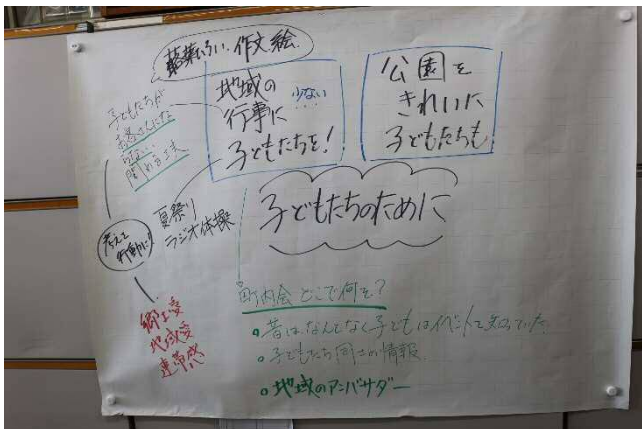 落葉ひろい、作文、絵
地域の 少ない
行事に
子どもたちを!
公園を
きれいに
子どもたちも
子どもたちが
お客さんにな
らない…
関わる工夫
考えて
行動に!
夏祭り
ラジオ体操
子どもたちのために
郷土愛
地域愛
連帯感
町内会 どこで何を?
・昔はなんとなく子どもはイベントを知っていた
・子どもたち同士の情報
・地域のアンバサダー